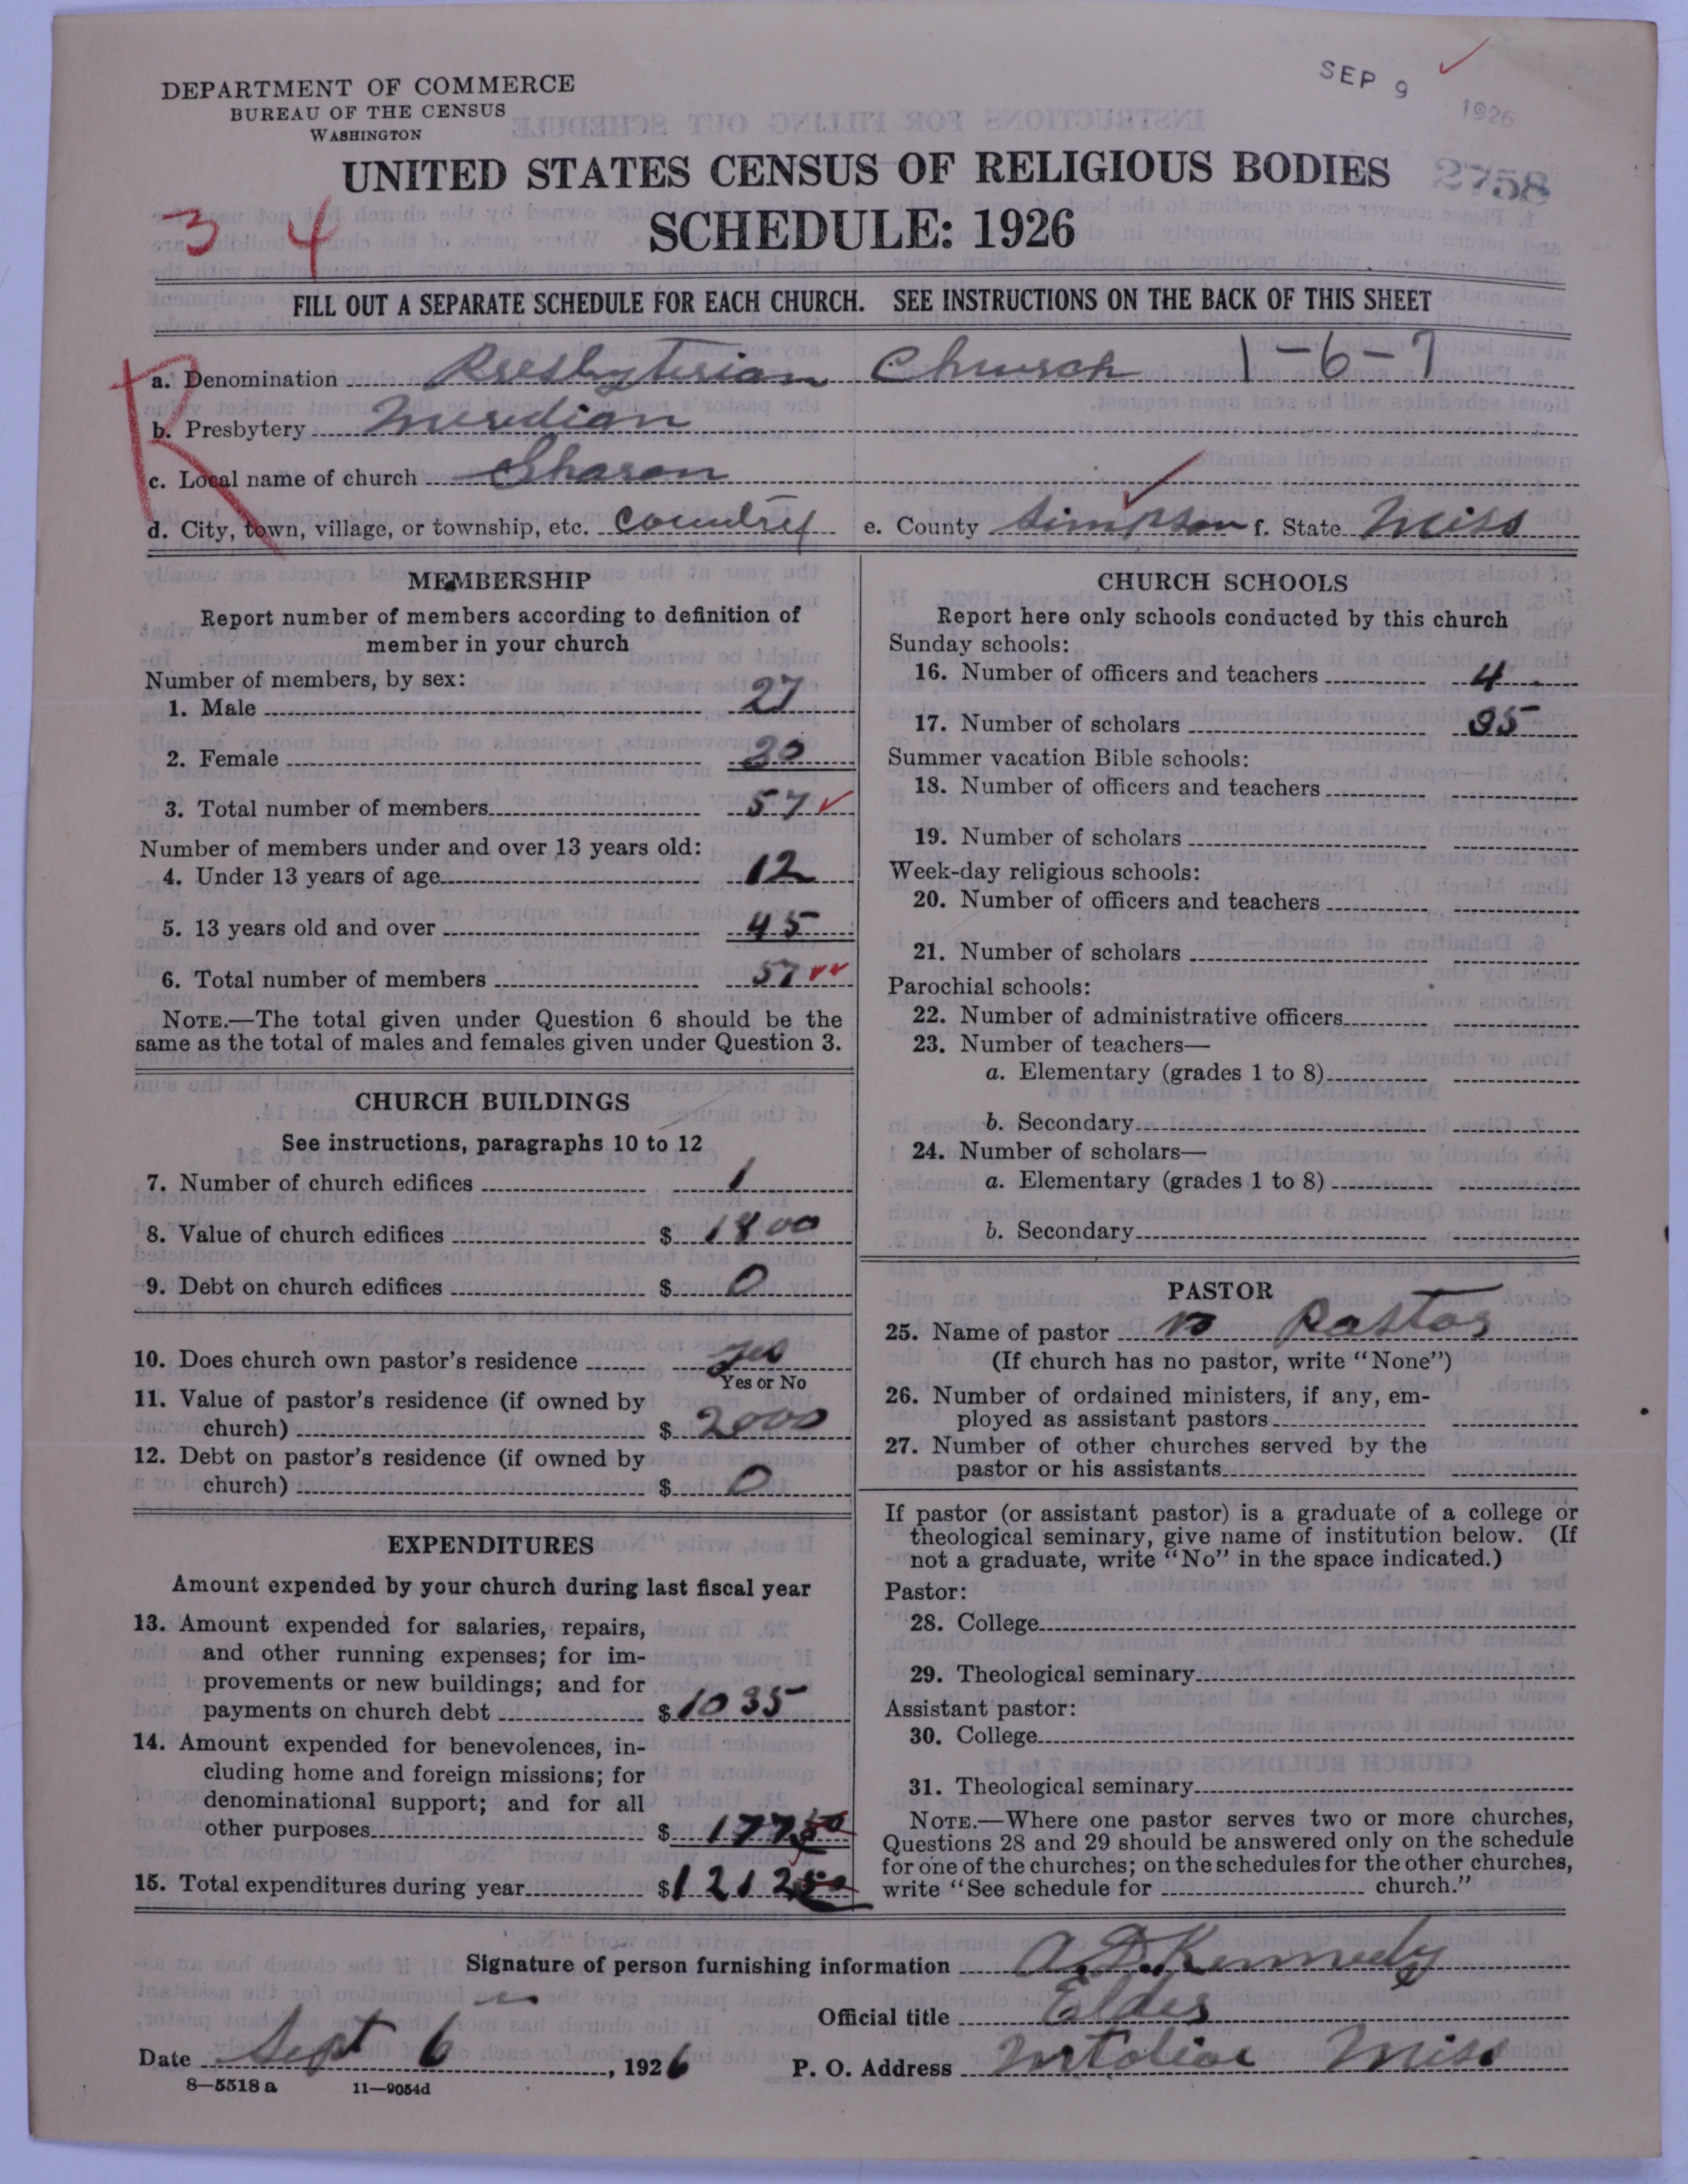 DEPARTMENT OF COMMERCE
BUREAU OF THE CENSUS
WASHINGTON
SEP 9 1926
UNITED STATES CENSUS OF RELIGIOUS BODIES
2758
SCHEDULE: 1926
3 4
FILL OUT A SEPARATE SCHEDULE FOR EACH CHURCH. SEE INSTRUCTIONS ON THE BACK OF THIS SHEET
R
a. Denomination Presbyterian Church 1-6-7
b. Presbytery Meredian
c. Local name of church Sharon
d. City, town, village, or township, etc. Country e. County Simpson f. State Miss
MEMBERSHIP
Report number of members according to definition of
member in your church
Number of members, by sex:
1. Male 27
2. Female 30
3. Total number of members 57
Number of members under and over 13 years old:
4. Under 13 years of age 12
5. 13 years old and over 45
6. Total number of members 57
NOTE.—The total given under Question 6 should be the
same as the total of males and females given under Question 3.
CHURCH BUILDINGS
See instructions, paragraphs 10 to 12
7. Number of church edifices 1
8. Value of church edifices $ 1800
9. Debt on church edifices $ 0
10. Does church own pastor's residence yes
Yes or No
11. Value of pastor's residence (if owned by
church) $ 2000
12. Debt on pastor's residence (if owned by
church) $ 0
EXPENDITURES
Amount expended by your church during last fiscal year
13. Amount expended for salaries, repairs,
and other running expenses; for im-
provements or new buildings; and for
payments on church debt $ 1035
14. Amount expended for benevolences, in-
cluding home and foreign missions; for
denominational support; and for all
other purposes $ 177 50
15. Total expenditures during year $ 1212 50
CHURCH SCHOOLS
Report here only schools conducted by this church
Sunday schools:
16. Number of officers and teachers 4
17. Number of scholars 35
Summer vacation Bible schools:
18. Number of officers and teachers
19. Number of scholars
Week-day religious schools:
20. Number of officers and teachers
21. Number of scholars
Parochial schools:
22. Number of administrative officers
23. Number of teachers—
a. Elementary (grades 1 to 8)
b. Secondary
24. Number of scholars—
a. Elementary (grades 1 to 8)
b. Secondary
PASTOR
25. Name of pastor no Pastor
(If church has no pastor, write "None")
26. Number of ordained ministers, if any, em-
ployed as assistant pastors
27. Number of other churches served by the
pastor or his assistants
If pastor (or assistant pastor) is a graduate of a college or
theological seminary, give name of institution below. (If
not a graduate, write "No" in the space indicated.)
Pastor:
28. College
29. Theological seminary
Assistant pastor:
30. College
31. Theological seminary
NOTE.—Where one pastor serves two or more churches,
Questions 28 and 29 should be answered only on the schedule
for one of the churches; on the schedules for the other churches,
write "See schedule for church."
Signature of person furnishing information A. D. Kennedy
Official title Elder
Date Sept 6, 1926 P. O. Address Miss
8—5518 a 11—9054d